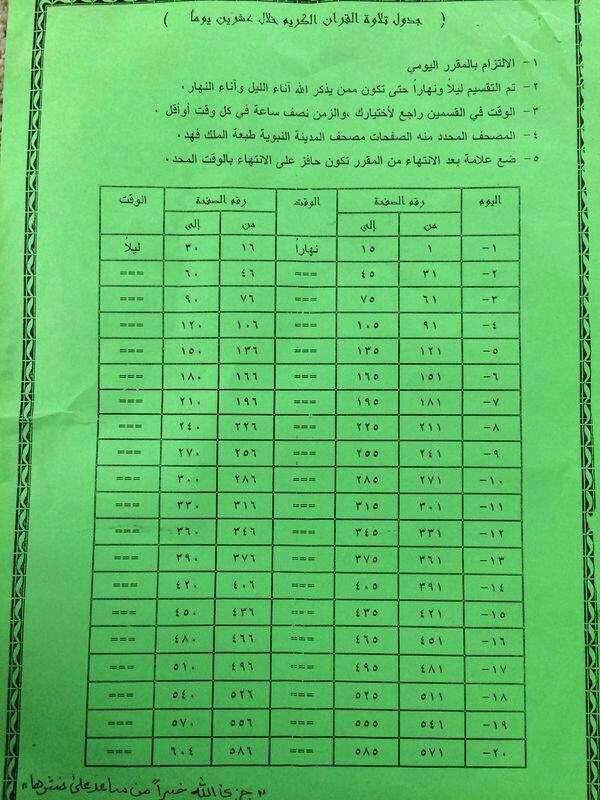 ( جدول تلاوة القران الكريم خلال عشرين يوماً )
١ - الالتزام بالمقرر اليومي
٢ - تم التقسيم ليلاً ونهاراً حتى تكون ممن يذكر الله آناء الليل وآناء النهار.
٣ - الوقت في القسمين راجع لأختيارك ،والزمن نصف ساعة في كل وقت أوأقل.
٤ - المصحف المحدد منه الصفحات مصحف المدينة النبوية طبعة الملك فهد.
٥ - ضع علامة بعد الانتهاء من المقرر تكون حافز على الانتهاء بالوقت المحد.
اليوم رقم الصفحة الوقت رقم الصفحة الوقت
من إلى من إلى
١- ١ ١٥ نهاراً ١٦ ٣٠ ليلاً
٢- ٣١ ٤٥ === ٤٦ ٦٠ ===
٣- ٦١ ٧٥ === ٧٦ ٩٠ ===
٤- ٩١ ١٠٥ === ١٠٦ ١٢٠ ===
٥- ١٢١ ١٣٥ === ١٣٦ ١٥٠ ===
٦- ١٥١ ١٦٥ === ١٦٦ ١٨٠ ===
٧- ١٨١ ١٩٥ === ١٩٦ ٢١٠ ===
٨- ٢١١ ٢٢٥ === ٢٢٦ ٢٤٠ ===
٩- ٢٤١ ٢٥٥ === ٢٥٦ ٢٧٠ ===
١٠- ٢٧١ ٢٨٥ === ٢٨٦ ٣٠٠ ===
١١- ٣٠١ ٣١٥ === ٣١٦ ٣٣٠ ===
١٢- ٣٣١ ٣٤٥ === ٣٤٦ ٣٦٠ ===
١٣- ٣٦١ ٣٧٥ === ٣٧٦ ٣٩٠ ===
١٤- ٣٩١ ٤٠٥ === ٤٠٦ ٤٢٠ ===
١٥- ٤٢١ ٤٣٥ === ٤٣٦ ٤٥٠ ===
١٦- ٤٥١ ٤٦٥ === ٤٦٦ ٤٨٠ ===
١٧- ٤٨١ ٤٩٥ === ٤٩٦ ٥١٠ ===
١٨- ٥١١ ٥٢٥ === ٥٢٦ ٥٤٠ ===
١٩- ٥٤١ ٥٥٥ === ٥٥٦ ٥٧٠ ===
٢٠- ٥٧١ ٥٨٥ === ٥٨٦ ٦٠٤ ===
"جزى الله خيراً من ساعد على نشرها"